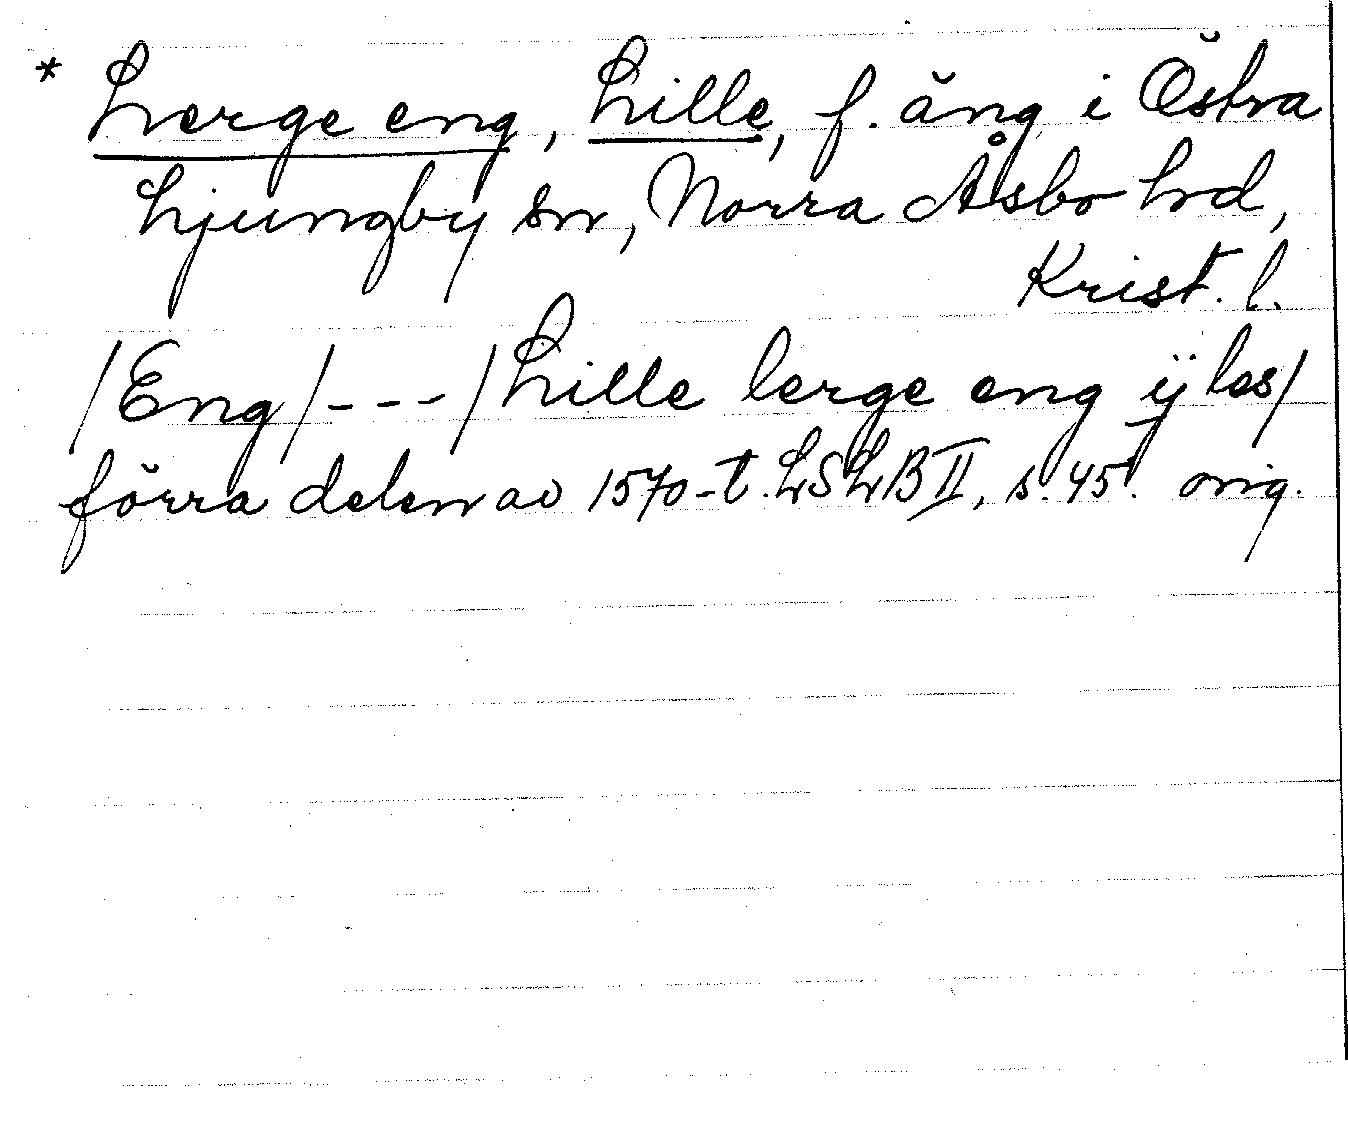 * Lerge eng, Lille, f. äng i Östra
Ljungby sn, Norra Åsbo hd,
Krist. l.
/Eng/---/Lille lerge eng ÿ les/
förra delen av 1570-t. LSLB II, s. 45. orig.